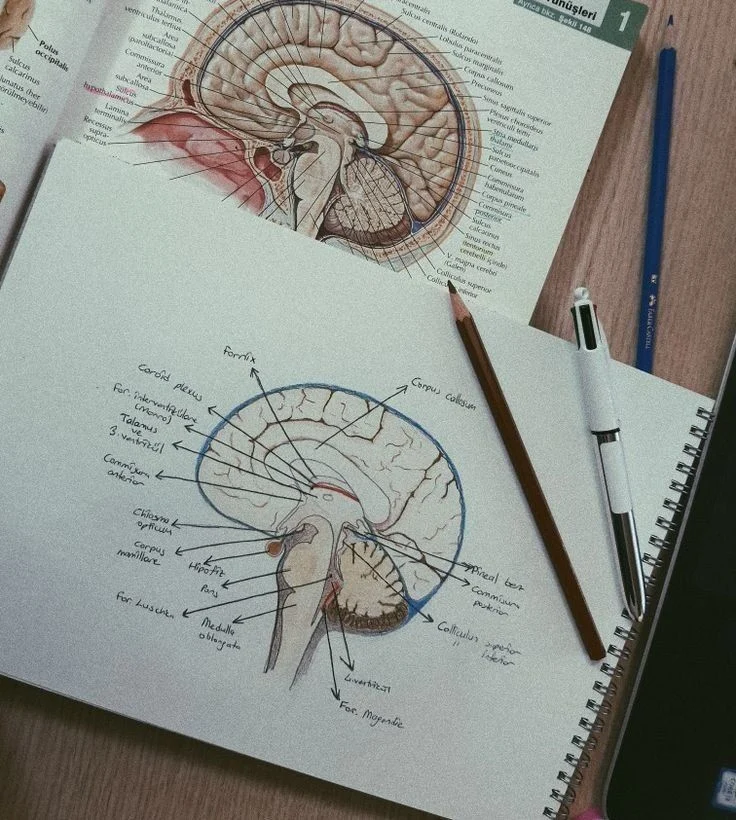 Polus
occipitalis
Sulcus
calcarinus
ventriculus tertius
Area
subcallosa
(parolfactoria)
Commissura
anterior
Area
subcallosa
Sulcus
hypothalamicus
Lamina
terminalis
Recessus
supra-
opticus
nüşleri
Ayrıca bkz. Şekil 148
1
Sulcus centralis (Rolando)
Lobulus paracentralis
Sulcus marginalis
Corpus callosum
Precuneus
Sinus sagittalis superior
Plexus choroideus
ventriculi tertii
Stria medullaris
thalami
Sulcus
parietooccipitalis
Cuneus
Commissura
habenularum
Corpus pineale
Commissura
posterior
Sulcus
calcarinus
Sinus rectus
(tentorium
cerebelli içinde)
V. magna cerebri
(Galen)
Colliculus superior
inferior
Fornix
Coroid plexus
For. interventriculare
(Monro)
Talamus
ve
3. ventrikül
Commisura
anterior
Chiasma
opticum
Corpus
mamillare
Hipofiz
Pons
For. Luschka
Medulla
oblongata
Corpus callosum
Pineal bez
Commisura
posterior
Colliculus superior
" inferior
4.ventrikül
For. Magendie
FABER-CASTELL